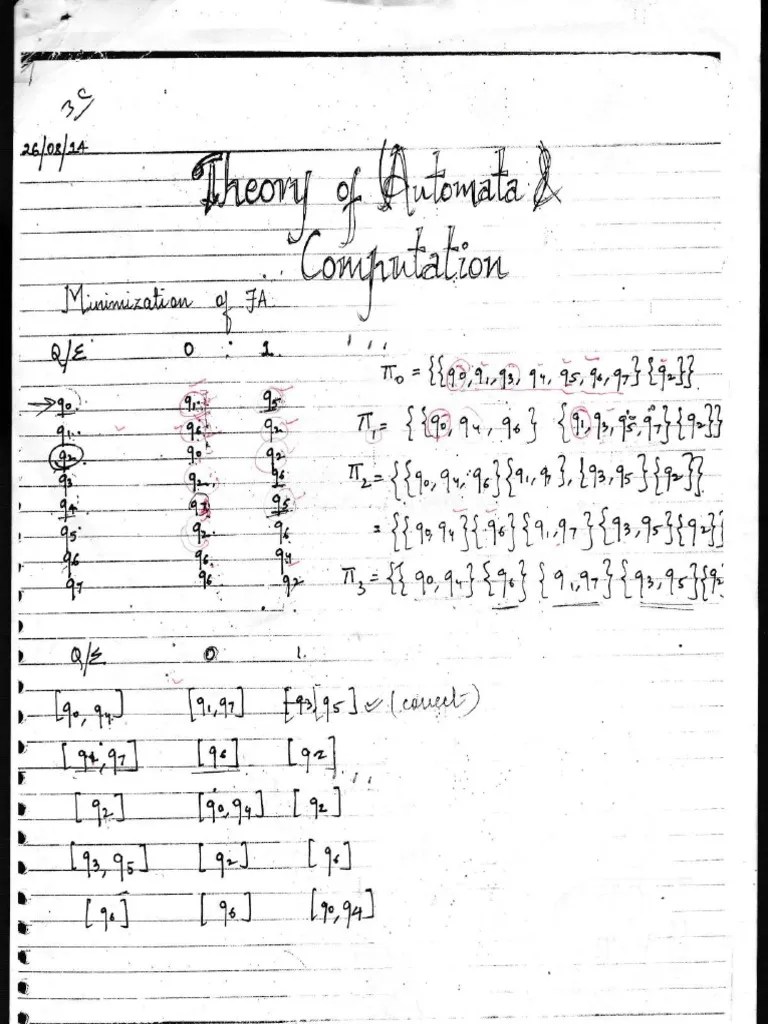 26/08/14
Theory of Automata &
Computation
Minimization of FA.
Q/Σ 0 1
→ q0 q1 q5
q1 q6 q2
q2 q0 q2
q3 q2 q6
q4 q7 q5
q5 q2 q6
q6 q6 q4
q7 q6 q2
π0 = {{q0, q1, q3, q4, q5, q6, q7} {q2}}
π1 = {{q0, q4, q6} {q1, q3, q5, q7} {q2}}
π2 = {{q0, q4, q6} {q1, q7}, {q3, q5} {q2}}
= {{q0, q4} {q6} {q1, q7} {q3, q5} {q2}}
π3 = {{q0, q4} {q6} {q1, q7} {q3, q5} {q2
Q/Σ 0 1.
[q0, q4] [q1, q7] [q3, q5] (correct)
[q1, q7] [q6] [q2]
[q2] [q0, q4] [q2]
[q3, q5] [q2] [q6]
[q6] [q6] [q0, q4]